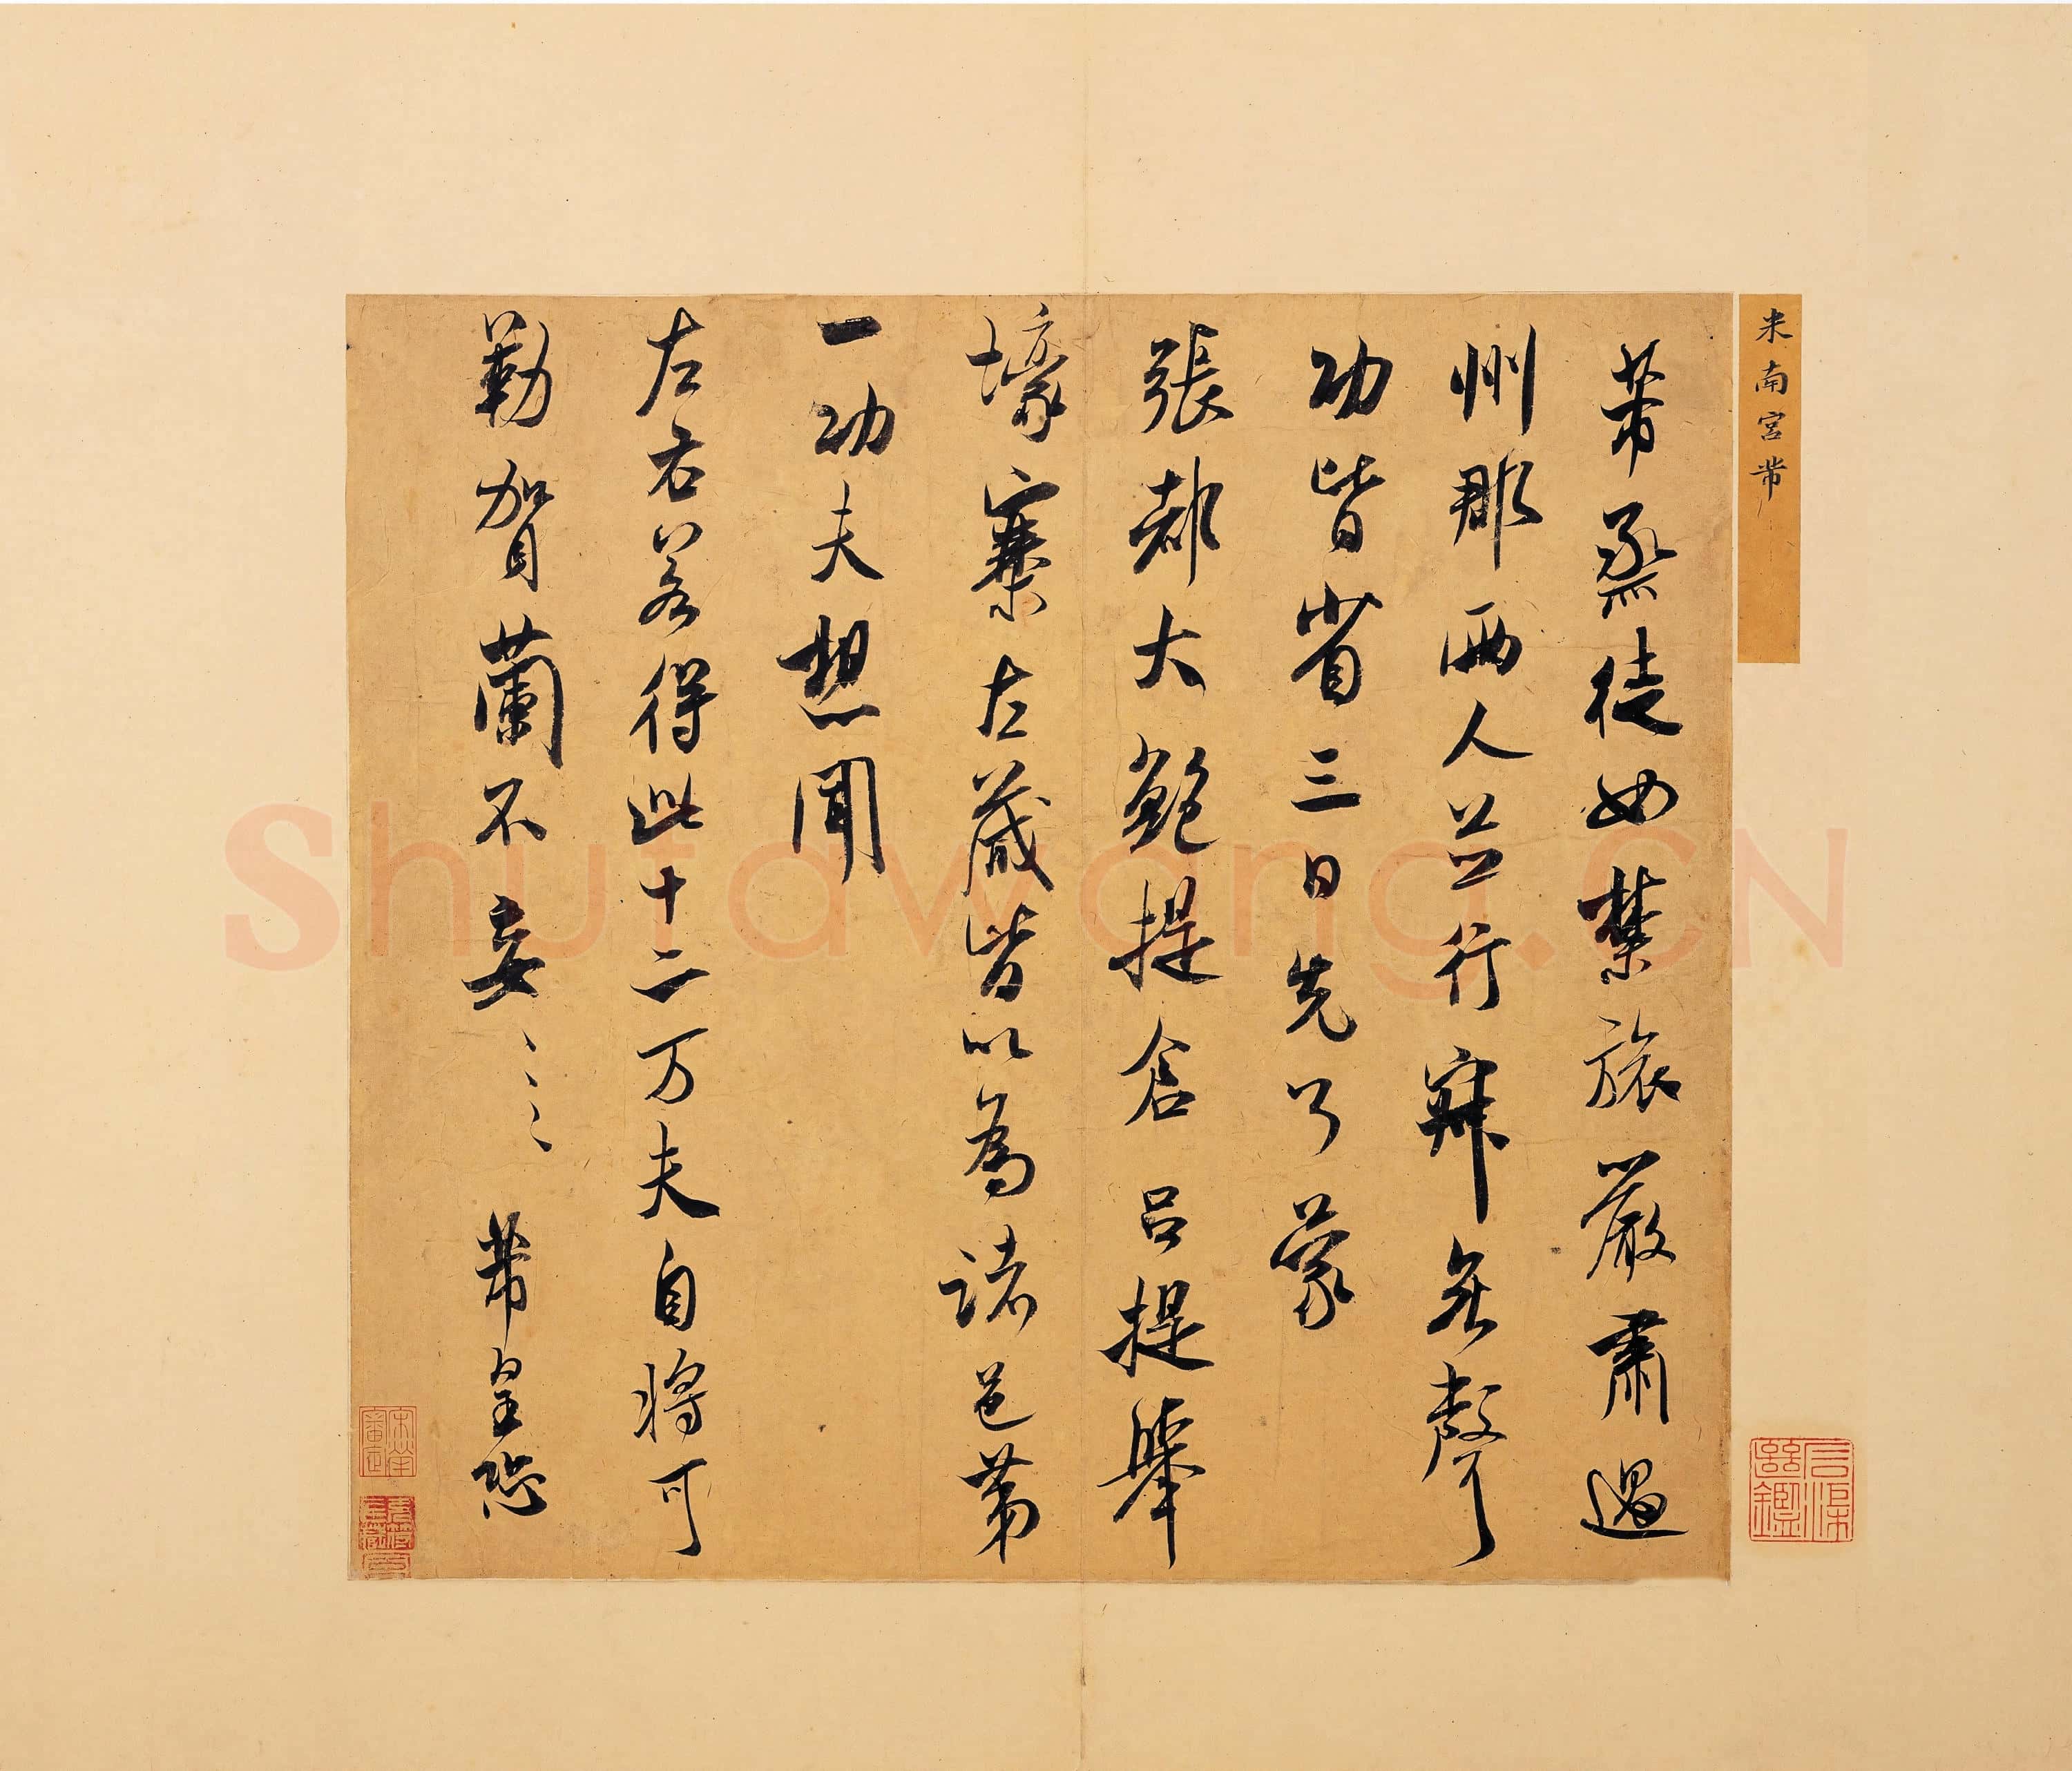 米南宮芾
芾烝徒如禁旅嚴肅過
州郡兩人並行寂無聲
功皆省三日先了蒙
張都大鮑提倉呂提舉
壕寨左藏皆以為諸邑第
一功夫想聞
左右若得此十二万夫自將可
勒賀蘭不妄〻〻芾皇恐
宋犖審定
Shufawang.CN